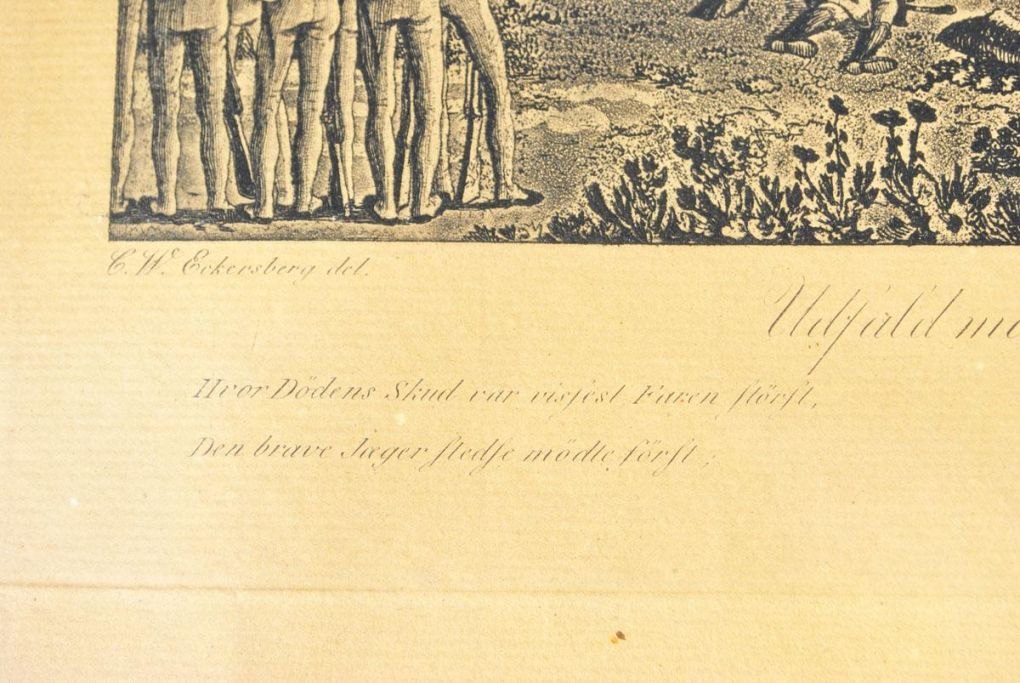 C. W. Eckersberg del.
Udfald
Hvor Dödens Skud var visſest Faren ſtörſt,
Den brave Jæger ſtedſe mödte förſt ;